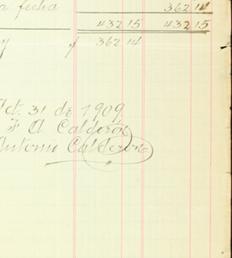 a fecha 362 14
432 15 432 15
y 362 14
Oct. 31 de 1909
F A Calderón
Antonio Calderón